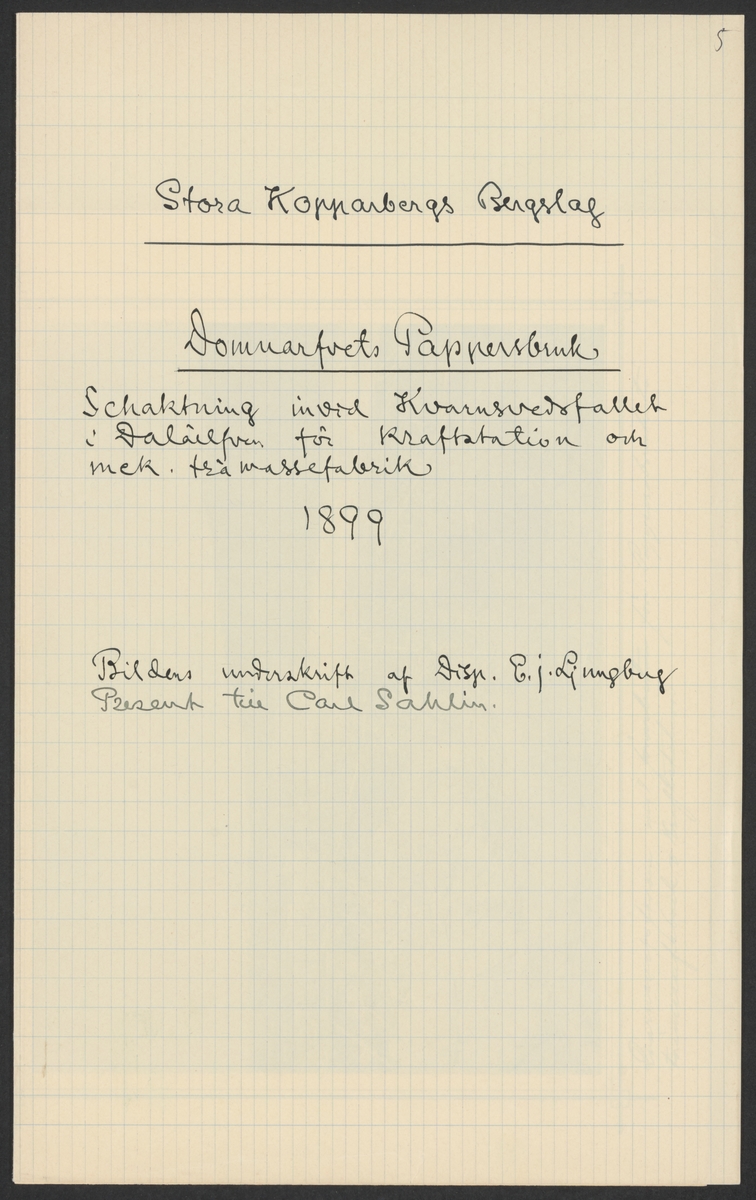 5
Stora Kopparbergs Bergslag
Domnarfvets Pappersbruk
Schaktning invid Kvarnsvedsfallet
i Dalälfven för kraftstation och
mek. trämassefabrik
1899
Bildens underskrift af Disp. E. j. Ljungberg
Present till Carl Sahlin.